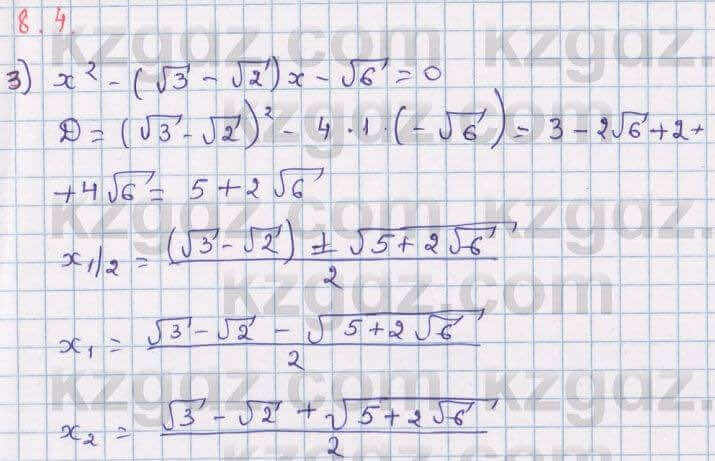 8.4.
3) x² - (√3 - √2)x - √6 = 0
D = (√3 - √2)² - 4·1·(-√6) = 3 - 2√6 + 2 +
+ 4√6 = 5 + 2√6
x₁/₂ = ((√3 - √2) ± √(5 + 2√6))/2
x₁ = (√3 - √2 - √(5 + 2√6))/2
x₂ = (√3 - √2 + √(5 + 2√6))/2
kzgdz.com
kzgdz.com
kzgdz.com
kzgdz.com
kzgdz.com
kzgdz.com